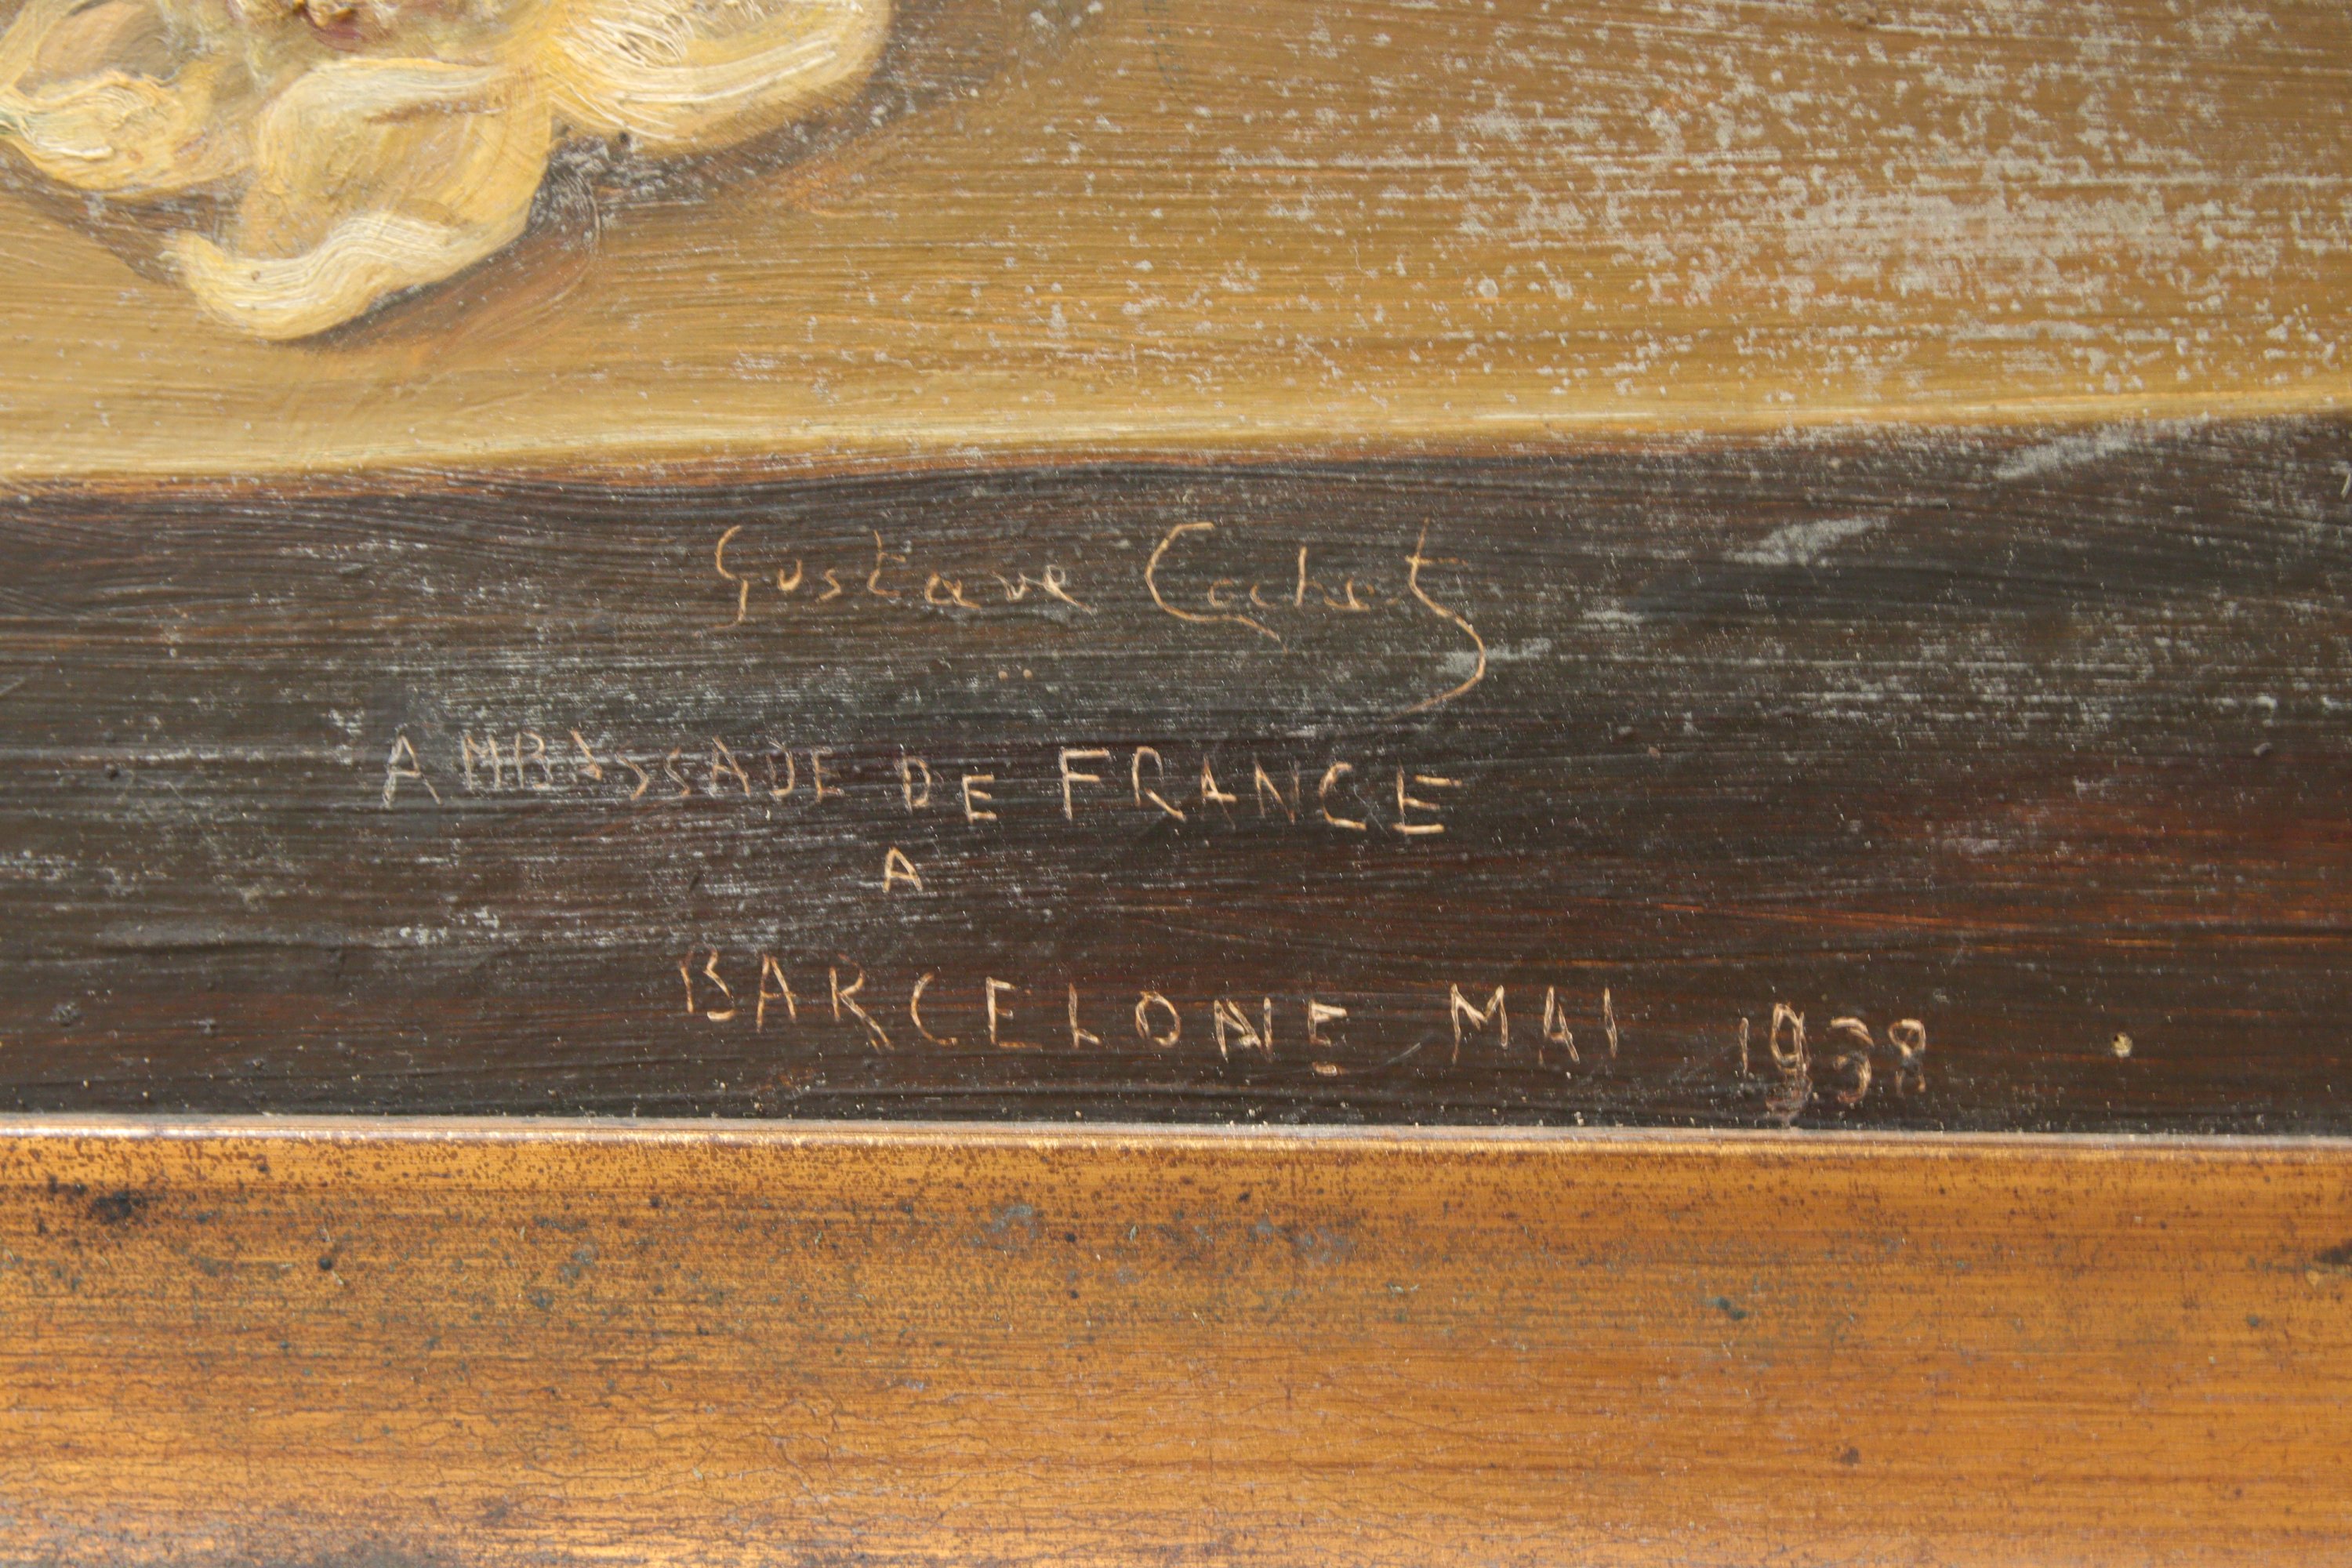 Gustave Cochet
AMBASSADE DE FRANCE
A
BARCELONNE MAI 1938